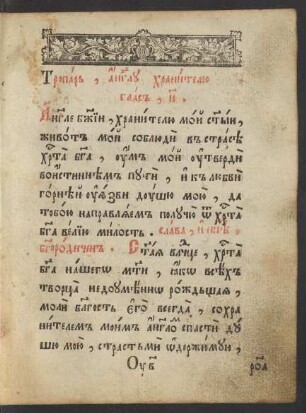 Тропа́рь , а҆́гг҃лу храни́телю
гла́съ , и҃ .
А҆́гг҃ле бж҃їи , храни́телю мо́й ст҃ы́и ,
живо́тъ мо́й соблюдѝ въ стра́сѣ
хрⷭ҇та̀ бг҃а , оу҆́мъ мо́й оу҆твердѝ
вои́стиннѣмъ пꙋтѝ , и҆ къ любвѝ
го́рнѣй оу҆ѧзвѝ дꙋ́шꙋ мою̀ , да
тобо́ю направлѧ́емъ полꙋчꙋ̀ ѿ хрⷭ҇та̀
бг҃а ве́лїю ми́лость . сла́ва , и҆ ны́нѣ
бг҃оро́диченъ . Ст҃а́ѧ влⷣчце , хрⷭ҇та̀
бг҃а на́шегѡ мт҃и , ꙗ҆́кѡ всѣ́хъ
творца̀ недоꙋмѣ́ннѡ ро́ждьшаѧ ,
молѝ бл҃гость є҆гѡ̀ всегда̀ , со храни́телемъ
мои́мъ а҆́гг҃ло спастѝ дꙋ
шꙋ мою̀ , страстьмѝ ѡ҆держи́мꙋю ,